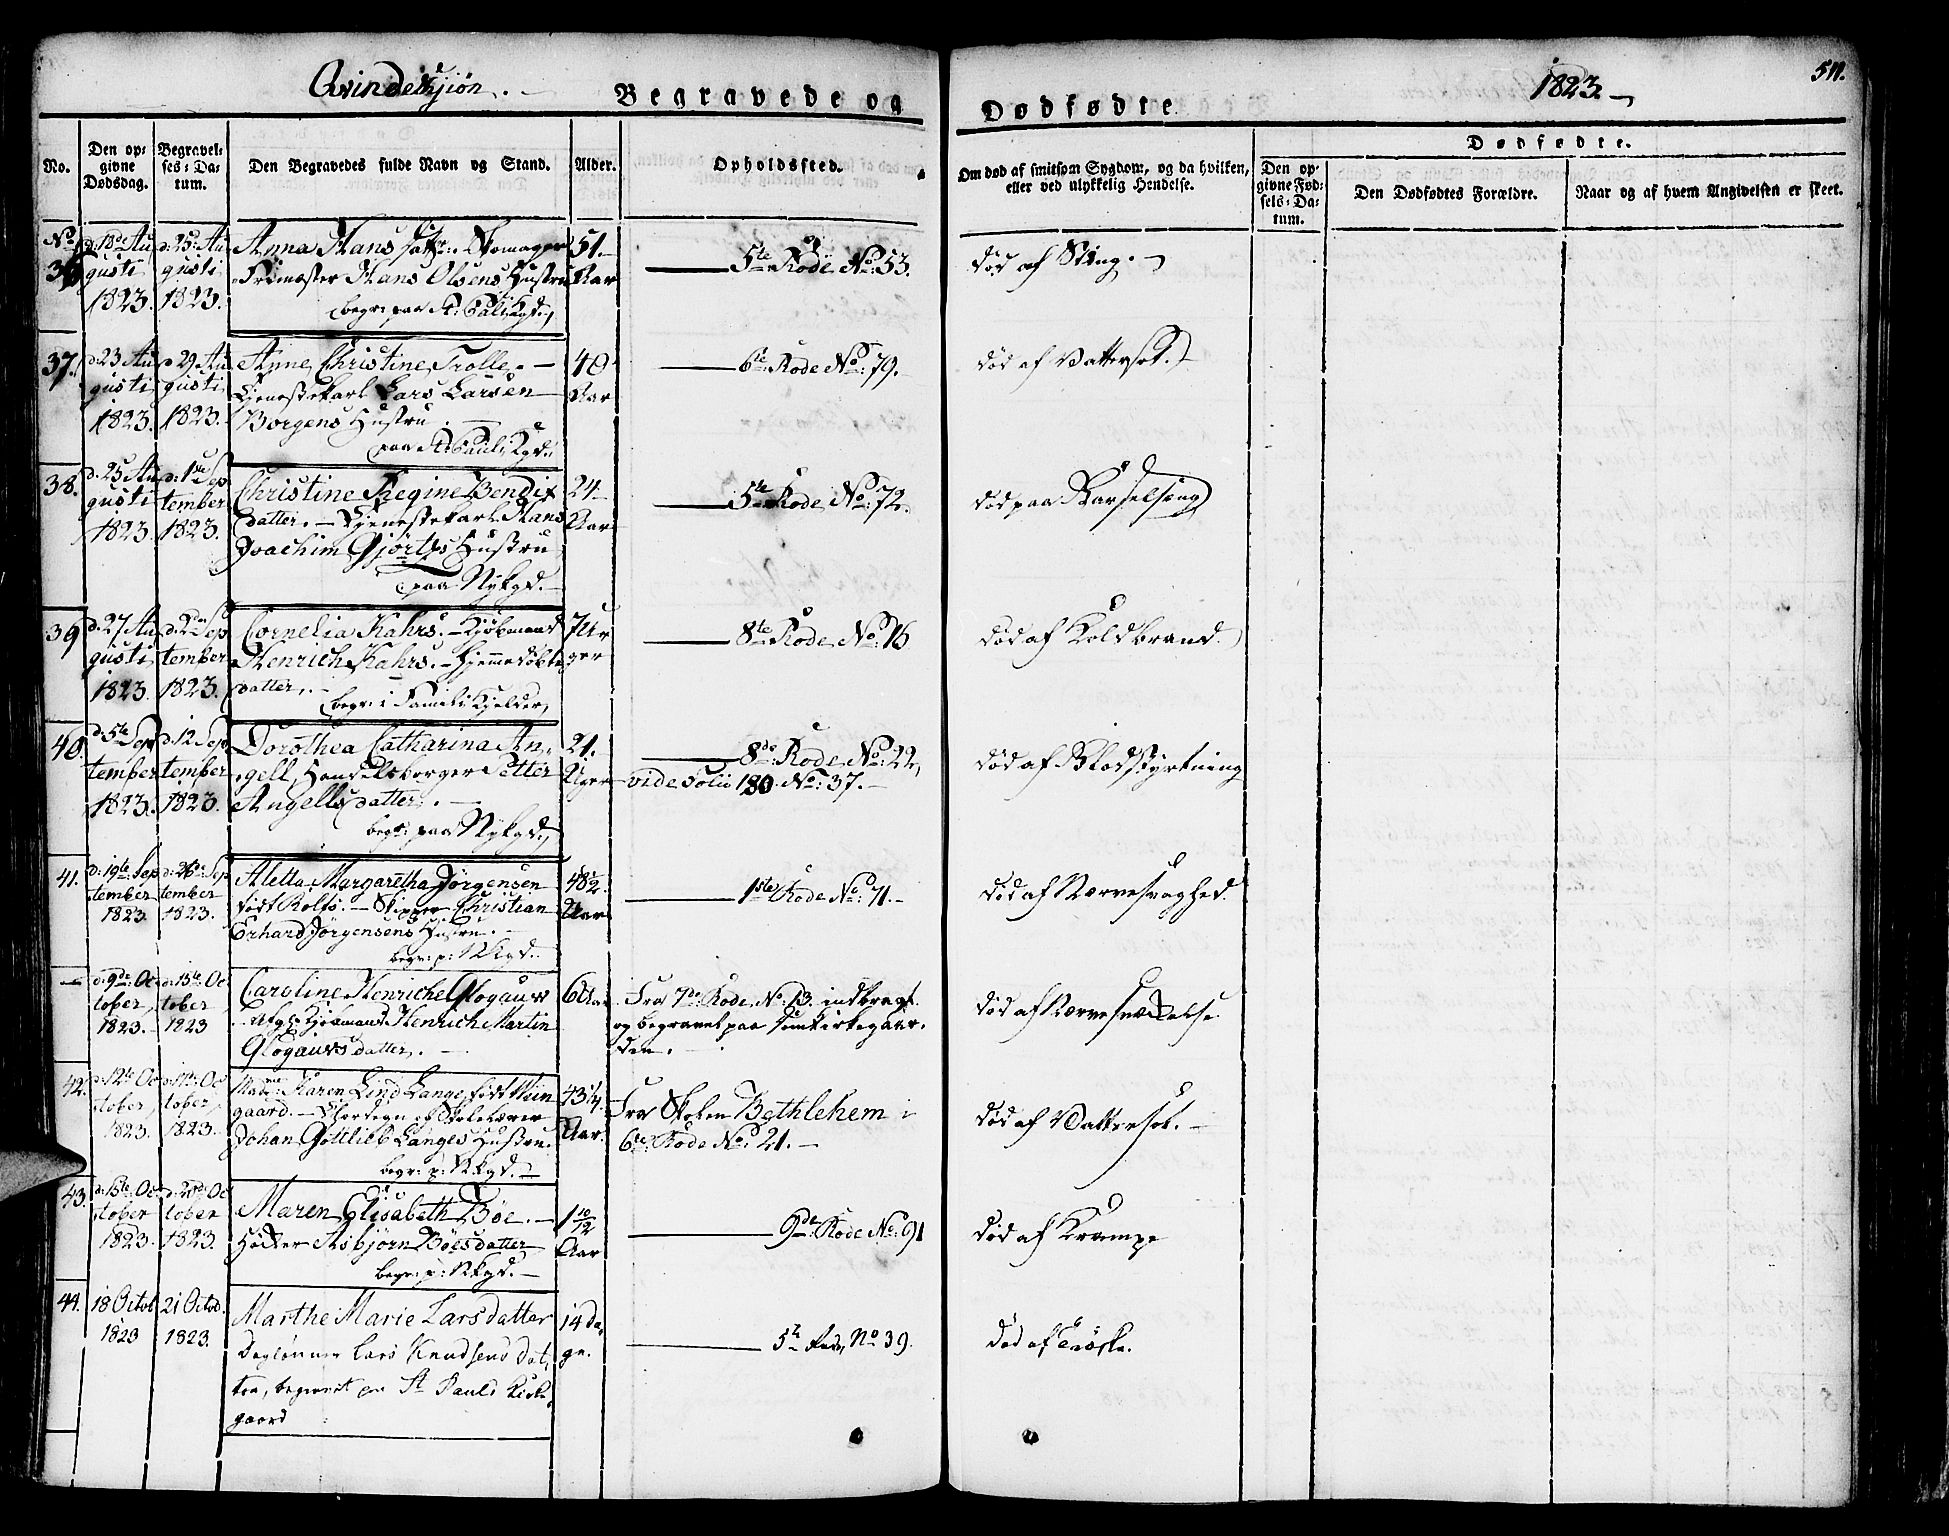 Qvindekjiøn.
Begravede og
Dødfødte
1823.
511.
No.
Den op-
givne
Dødsdag.
Begravel-
ses-Da-
tum.
Den Begravedes fulde Navn og Stand.
Alder.
Opholdssted.
Om død af smitsom Sygdom, og da hvilken,
eller ved ulykkelig Hendelse.
Dødfødte.
Den op-
givne Fød-
sels-Da-
tum.
Den Dødfødtes Forældre.
Naar og af hvem Angivelsen er skeet.
No 36
d: 18de Au
gusti
1823.
d: 25: Au
gusti
1823.
Anna Hans Datter. Skomager
Frimester Hans Olsens Hustru
begr: paa St: Pauli Kgd:
51.
Aar
5te Rode No: 53.
død af Sting.
37.
d: 23 Au
gusti
1823.
d: 29 Au
gusti
1823.
Anne Christine Trolle.
Tjenestekarl Lars Larsen
Borgens Hustru
paa St: Pauli Kgd:
40
Aar
6te Rode No: 79.
død af Vattersot.
38.
d: 25 Au
gusti
1823.
d: 1ste Sep
tember
1823.
Christine Regine Bendix
datter. - Tjenestekarl Hans
Joachim Gjørtzs Hustru
paa Nykgd.
24
Aar
5te Rode No: 72.
død paa Barselseng
39
d: 27 Au
gusti
1823.
d: 2den Sep
tember
1823.
Cornelia Kahrs. - Kjøbmand
Henrich Kahrs. - Hjemmedøbte
datter.
begr: i Famili Kjelder,
7 Uu
ger
8te Rode No: 16
død af Koldbrand.
40.
d: 5te Sep
tember
1823.
d: 12 Sep
tember
1823.
Dorothea Catharina An-
gell, Handelsborger Petter
Angells datter.
begr: paa Nykgd,
21.
Uger
8de Rode No: 22,
vide Folii 180. No: 37.
død af Blodstyrtning
41.
d: 19te Sep
tember
1823
d: 26de Sep
tember
1823.
Aletta Margaretha Jørgensen
født Rolfs. - Skipper Christian
Erhard Jørgensens Hustru.
begr: p: NKgd.
48½
Aar
1ste Rode No: 71.
død af Nærvesvaghed.
d: 9de Oc
tober
1823.
d: 15te Oc
tober
1823
Caroline Henriche Glogauw
Afg: Kjøbmand Henrich Martin
Glogauws datter.
6 Aar
Fra 7de Rode, No: 13. indbragt
og begravet paa Domkirkegaar-
den.
død af Nærvesvækkelse
42.
d: 12te Oc
tober
1823.
d: 17te Oc
tober,
1823.
Madme: Karen Lind Lange, født Wiin
gaard. - Klokker og Skolelærer
Johan Gottlieb Langes Hustru.
begr: p: NKgd.
43¼.
Aar.
Fra Skolen Bethlehem i
6te Rode No: 21.
død af Vattersot.
43.
d: 15te Oc
tober
1823
d: 20de Oc
tober
1823.
Maren Elisabeth Böe.
Høcker Asbjørn Böes datter
begr: p: NKgd.
1 10/12
Aar
9de Rode No: 91
død af Krampe
44.
18 Octob
1823
21 Octob.
1823.
Marthe Marie Larsdatter
Daglønner Lars Knudsens Dat-
ter, begravet paa St Pauls Kirke-
gaard
14 Da-
ge.
5te Rode, No 39.
død af Trøske.